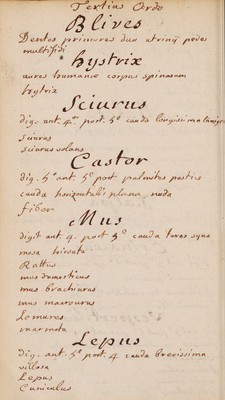 Tertius Ordo
Glires
Dentes primores duo utrinq pedes
multifidi
hystrix
aures humanæ corpus spinosum
hystrix
Sciurus
dig. ant. 4 post. 5 cauda longissima lanigera
sciurus
sciurus volans
Castor
dig. 5 ant. 5 post palmatis posticis
cauda horizontali plana nuda
fiber
Mus
digit ant. 4. post 5 cauda teres
hirsuta
Rattus
mus domesticus
mus brachiurus
mus macrourus
Lemures
marmota
Lepus
dig. ant. 5 post. 4 cauda brevissima
villosa
Lepus
Cuniculus